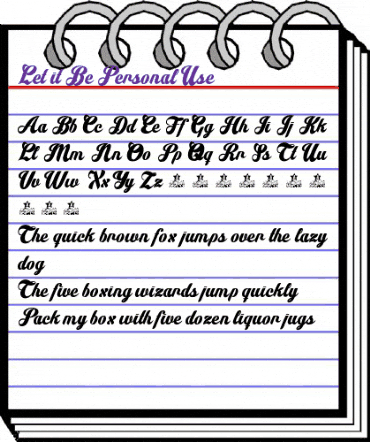 Let it Be Personal Use
Aa Bb Cc Dd Ee Ff Gg Hh Ii Jj Kk
Ll Mm Nn Oo Pp Qq Rr Ss Tt Uu
Vv Ww Xx Yy Zz
The quick brown fox jumps over the lazy
dog
The five boxing wizards jump quickly
Pack my box with five dozen liquor jugs